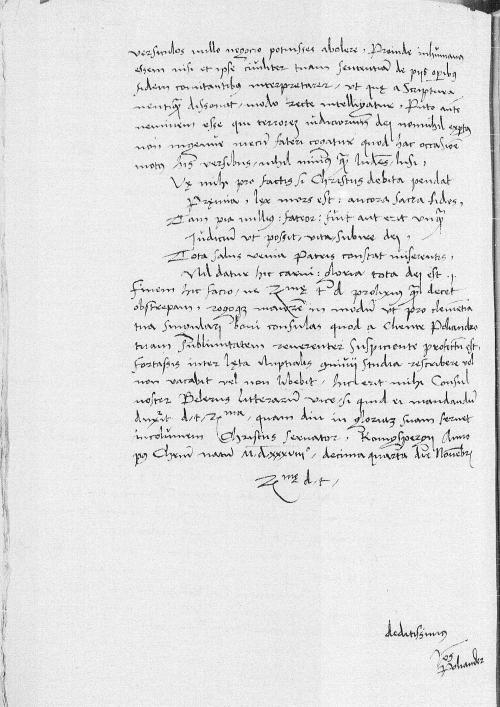 versiculos nullo negocio potuisses abolere, Proinde inhumana
essem nisi et ipse civiliter tuam sententiam de pijs operibus
fidem comitantibus interpretarer, ut quę a Scriptura
non dissonat, modo recte intelligatur. Puto autem
neminem esse qui terrorem iudiciorum dei nonnihil expertus
non ingenue mecum fateri cogatur quod hac occasione
motus his versibus, nihil minus quam lusi,
Vę mihi pro factis si Christus debita pendat
Pręmia, lex mors est: ancora sacra fides,
Tam pia nullius: fateor: fuit aut erit unquam
Iudicium ut possit, vita, subire dei,
Tota salus venia Patris constat miserentis,
Nil datur hic carni: gloria tota dei est.
Finem hic facio, ne t d prolixius quam decet
obstrepam, rogoque in modum ut pro clementia
tua boni consulas quod a Cliente Poliandro
tuam Sublimitatem reverenter suspiciente profectum est,
fortassis inter lęta Nuptialis studia rescribere vel
non vacabit vel non libebit, hic erit mihi Consul
noster Belerus litterarum vice, si quid ei mandandum
duxerit d. t. quam diu in gloriam suam servet
incolumem Christus servator. Anno
post Christum natum M.D.xxxviii, decima quarta die Novembris
d. t,
deditissimus
Jo: Poliander